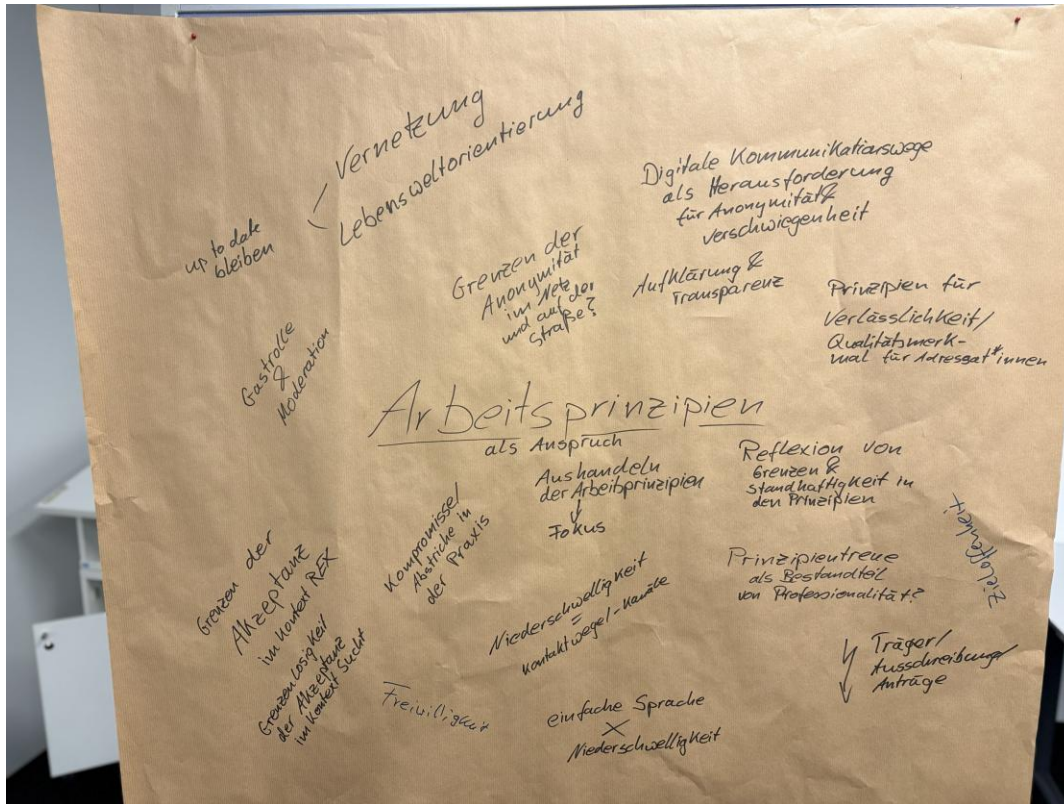 Vernetzung
Lebensweltorientierung
up to date
bleiben
Digitale Kommunikationswege
als Herausforderung
für Anonymität &
Verschwiegenheit
Grenzen der
Anonymität
im Netz
und auf der
Straße?
Aufklärung &
Transparenz
Prinzipien für
Verlässlichkeit/
Qualitätsmerk-
mal für Adressat*innen
Gastrolle
&
Moderation
Arbeitsprinzipien
als Anspruch
Aushandeln
der Arbeitsprinzipien
Fokus
Reflexion von
Grenzen &
Standhaftigkeit in
den Prinzipien
Kompromisse/
Abstriche in
der Praxis
Zieloffenheit
Grenzen der
Akzeptanz
im Kontext REX
Grenzenlosigkeit
der Akzeptanz
im Kontext Sucht
Niederschwelligkeit
=
Kontaktwege/-Kanäle
Prinzipientreue
als Bestandteil
von Professionalität?
Träger/
Ausschreibung/
Anträge
Freiwilligkeit
einfache Sprache
X
Niederschwelligkeit